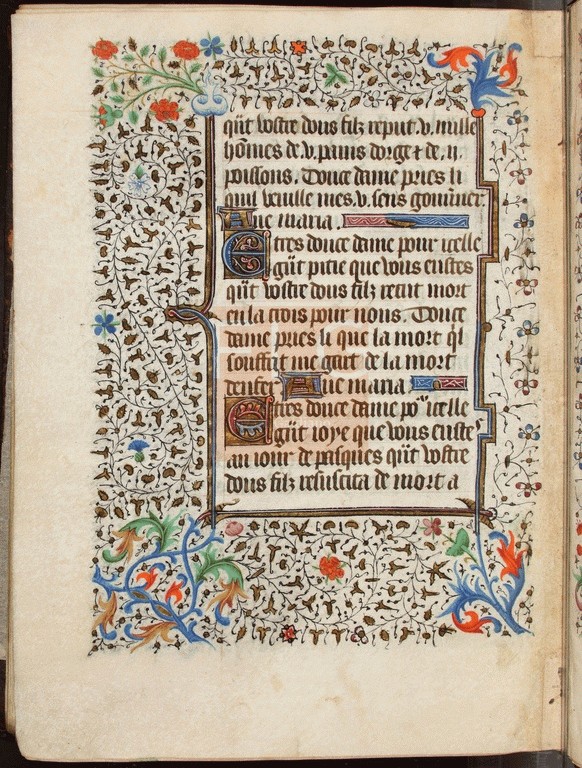 qũt vostre dous filz reput .v. mille
hõmes de .v. pains dorge & de .ii.
poissons. Douce dame pries li
quil veulle mes .v. sens gouũner.
Aue maria.
E tres douce dame pour icelle
gũt pitie que vous eustes
qũt vostre dous filz recut mort
en la crois pour nous. Douce
dame pries li que la mort q̃l
souffrit me gart de la mort
denfer. Aue maria.
E tres douce dame poᵘ icelle
gũt ioye que vous eustes
au iour de pasques qũt vostre
dous filz resuscita de mort a